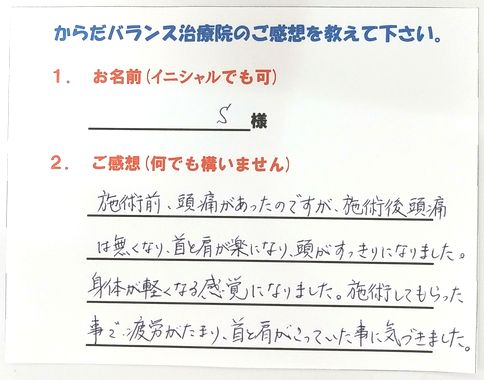 からだバランス治療院のご感想を教えて下さい。
1. お名前(イニシャルでも可)
S 様
2. ご感想(何でも構いません)
施術前、頭痛があったのですが、施術後頭痛
は無くなり、首と肩が楽になり、頭がすっきりになりました。
身体が軽くなる感覚になりました。施術してもらった
事で、疲労がたまり、首と肩がこっていた事に気づきました。